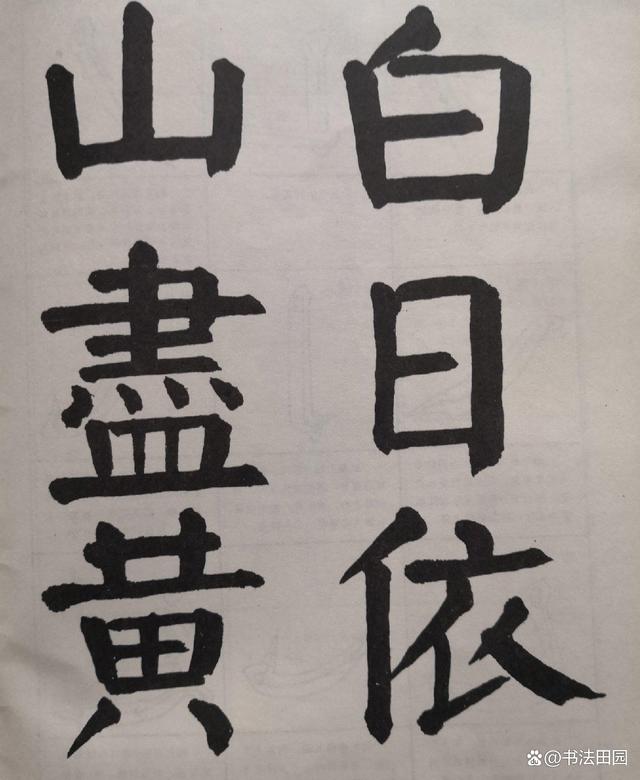 白日依
山盡黄
@书法田园